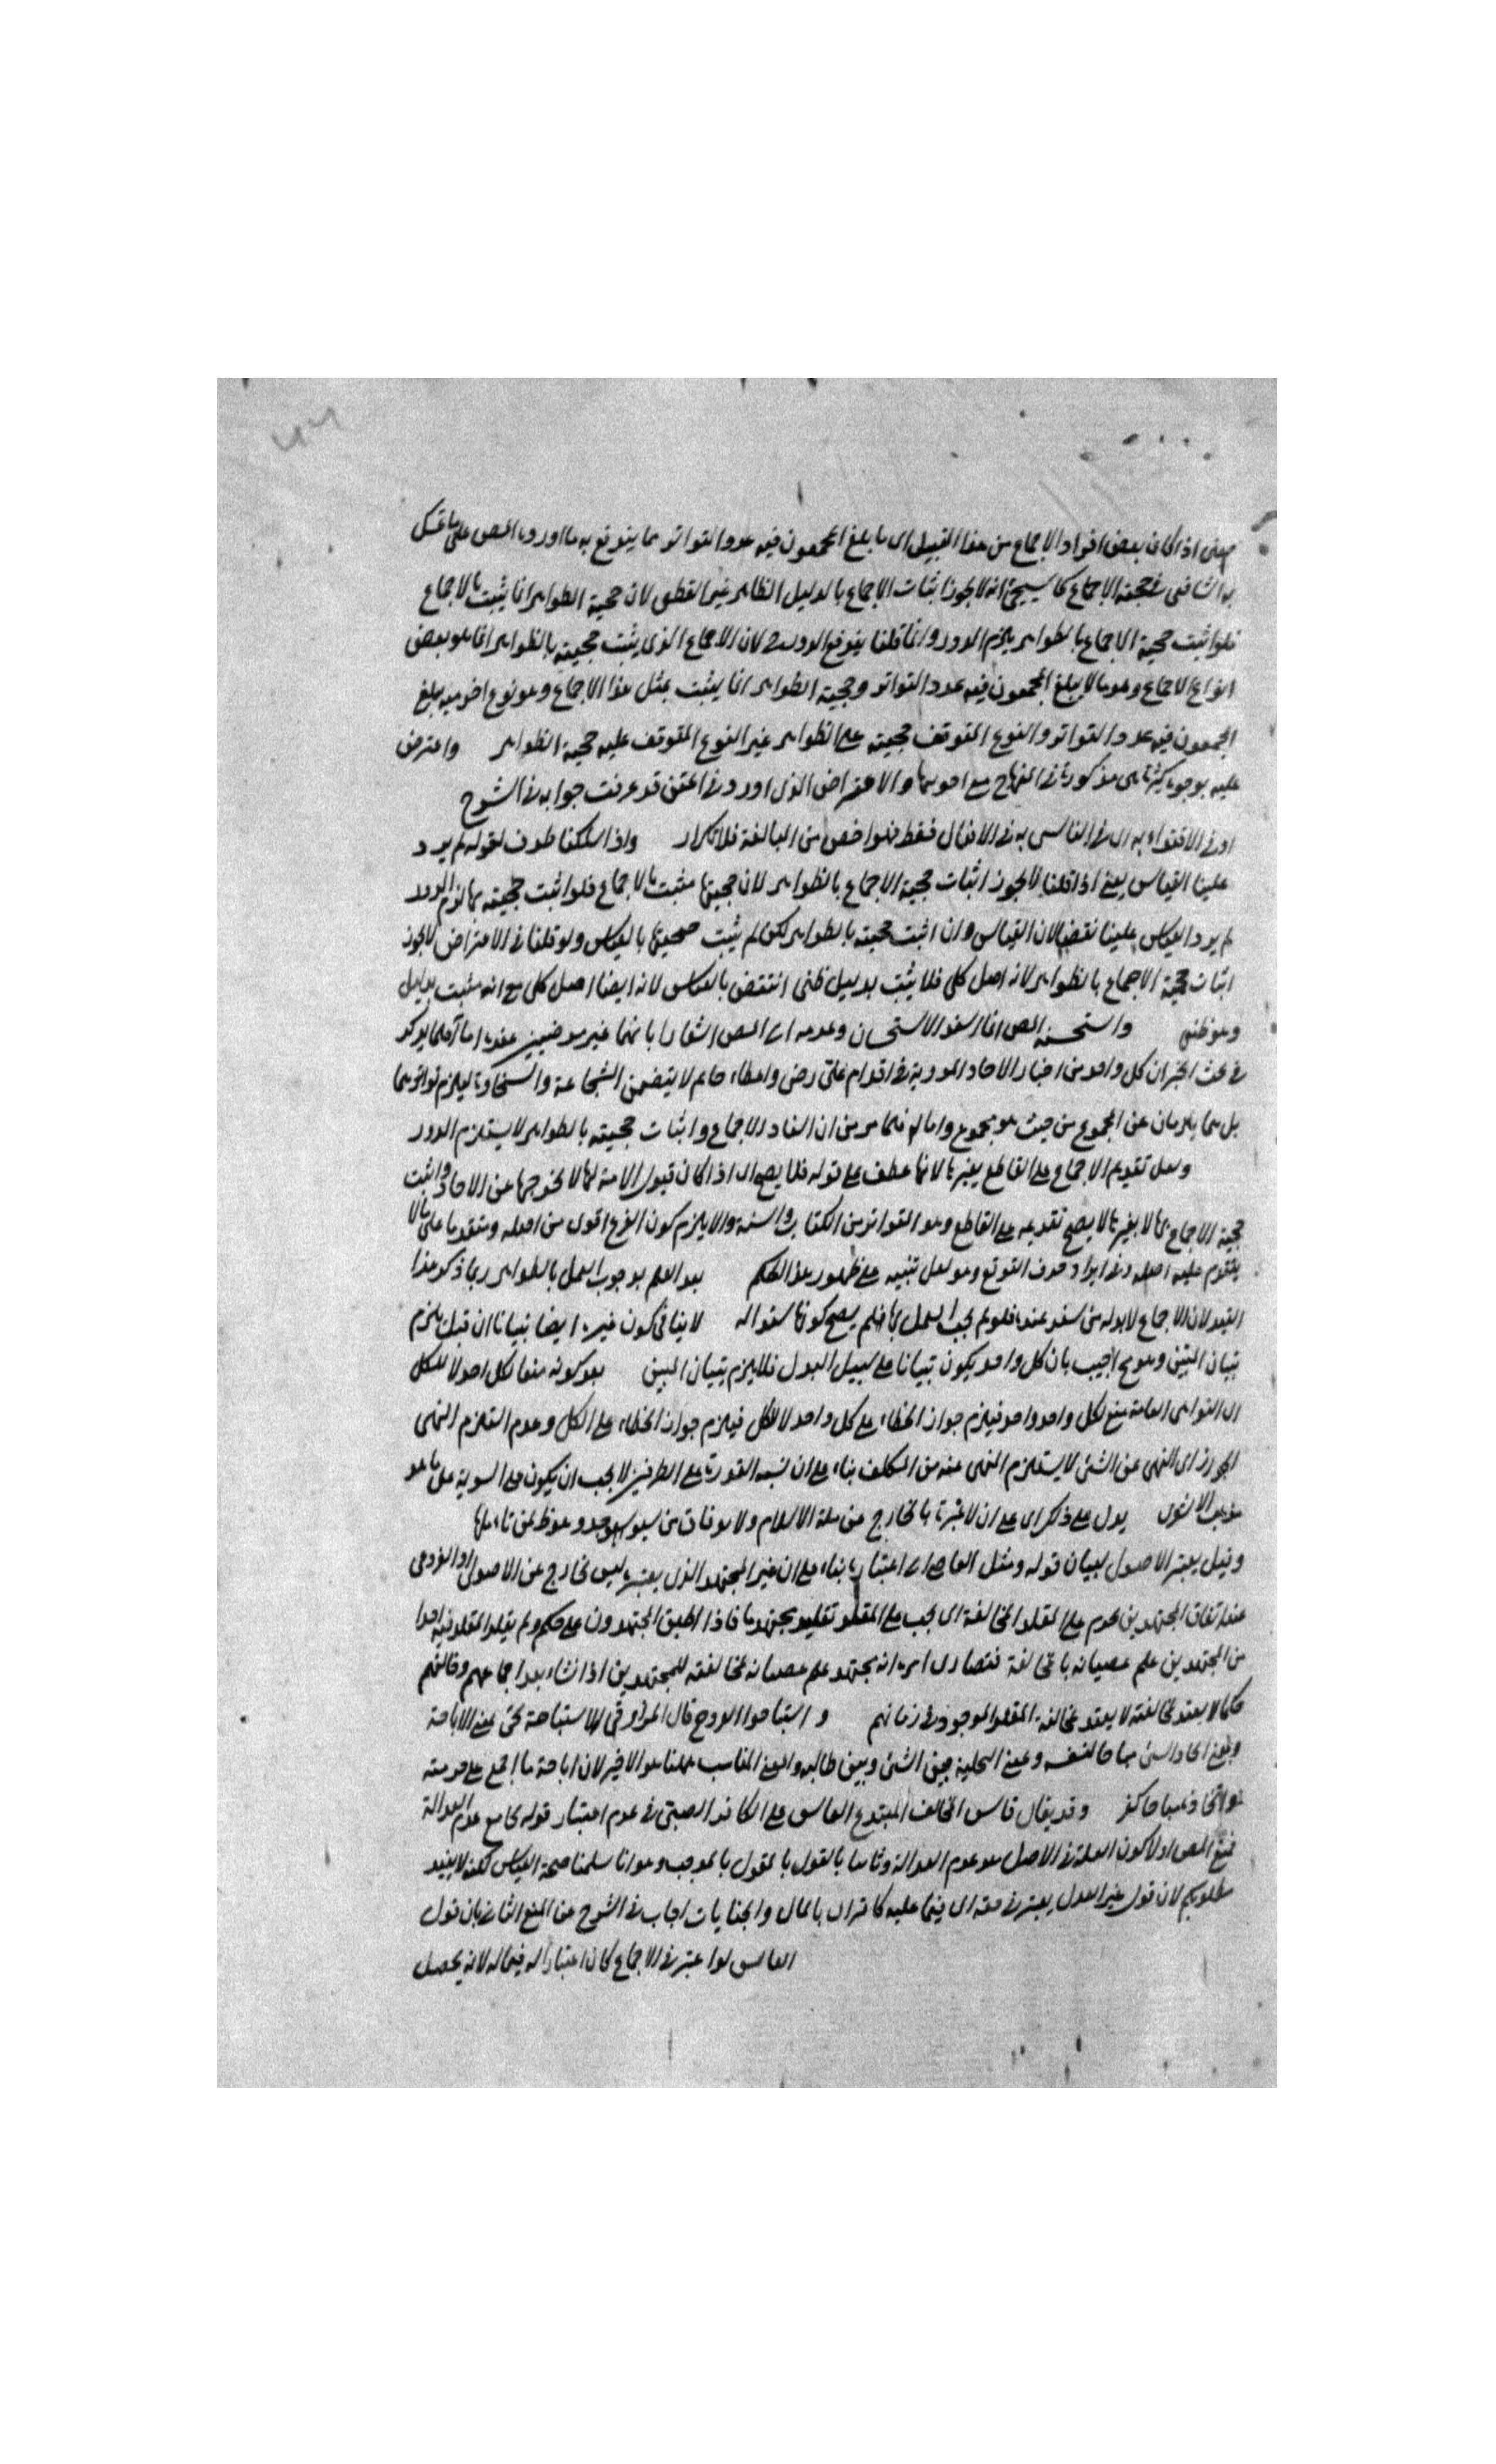 اذا كان بعض افراد الاجماع من هذا القبيل اى ما بلغ المجمعون فيه عدد التواتر مما يندفع به ما اورده المص على ما تمسك
به الشافعى فى حجية الاجماع كما سيجئ انه لا يجوز اثبات الاجماع بالدليل الظاهر غير القطعى لان حجية الظواهر انما يثبت بالاجماع
فلو اثبت حجية الاجماع بالظواهر يلزم الدور وانما قلنا يندفع الدور لان الاجماع الذى يثبت حجيته بالظواهر انما هو بعض
انواع الاجماع وهو ما لا يبلغ المجمعون فيه عدد التواتر وحجية الظواهر انما يثبت بمثل هذا الاجماع وهو نوع اخر منه يبلغ
المجمعون فيه عدد التواتر والنوع المتوقف حجيته على الظواهر غير النوع المتوقف عليه حجية الظواهر واعترض
عليه بوجوه كثيرة هى مذكورة فى المنهاج مع اجوبتها والاعتراض الذى اورد فى المتن قد عرفت جوابه فى الشرح
او فى الاقتداء به اى فى التاسى به فى الافعال فقط فهو اخص من المبالغة فلا تكرار واذا سلكنا طرف قوله لم يرد
علينا القياس يعنى اذا قلنا لا يجوز اثبات حجية الاجماع بالظواهر لان حجيتها مثبت بالاجماع فلو اثبت حجيته بها لزم الدور
لم يرد القياس علينا نقضا لان القياس وان اثبت حجيته بالظواهر لكن لم يثبت حجيتها بالقياس ولو قلنا فى الاعتراض لا يجوز
اثبات حجية الاجماع بالظواهر لانه اصل كلى فلا يثبت بدليل ظنى انتقض بالقياس لانه ايضا اصل كلى مع انه مثبت بدليل
وهو ظنى واستحسنه المص انما اسند الاستحسان وعدمه الى المص اشعارا بانهما غير مرضيين عنده اما
فى بحث الخبر ان كل واحد من اخبار الاحاد المروية فى اقدام على رض واعطاء حاتم لا يتضمن الشجاعة والسخاوة ليلزم تواترهما
بل هما يلزمان عن المجموع من حيث هو مجموع واما فلما مر من ان الاجماع واثبات حجيته بالظواهر لا يستلزم الدور
ولعل تقديم الاجماع على القاطع بغيرها لانها عطف على قوله فلا يصح اى اذا كان قبول الامة لها لا يخرجها عن الاحاد واثبت
حجية الاجماع بها لا بغيرها لا يصح تقديمه على القاطع وهو المتواتر من الكتاب والسنة والا يلزم كون الفرع اقوى من اصله ومتقدما على ما لا
يتقدم عليه اصله وفى ايراد حرف التوقع وهو لعل تنبيه على ظهور هذا الحكم بعد العلم بوجوب العمل بالظواهر ربما ذكر هذا
القيد لان الاجماع لا بد له من سند عنده فلو لم يجب العمل بها فلم يصح كونها سندا له لا ينافى كون غيره ايضا تبيانا ان قيل يلزم
تبيان المبين وهو مح اجيب بان كل واحد يكون تبيانا على سبيل البدل فلا يلزم تبيان المبين بعد كونه منعا لكل احد لا للكل
اى النواهى العامة منع لكل واحد واحد فيلزم جواز الخطاء على كل واحد لا للكل فيلزم جواز الخطاء على الكل وعدم استلزام النهى
الجواز اى النهى عن الشئ لا يستلزم النهى عنه من المكلف بناء على ان نسبة القدرة على الطرفين لا يجب ان يكون على السوية على ما هو
مذهب يدل على ذلك اى على ان لا عبرة بالخارج عن ملة الاسلام ولا بوفاق من سيوجد وهو ظ لمن تاملها
وقيل يعتبر الاصولى لبيان قوله ومثل العاصى اى اعتباره بناء على ان غير المجتهد الذى يعتبر ليس بخارج عن الاصولى او الفروعى
عند اتفاق المجتهدين يحرم على المقلد المخالفة اى يجب على المقلد تقليد مجتهد ما فاذا اطبق المجتهدون على حكم ولم يقلد المقلد فيه احدا
من المجتهدين علم عصيانه بالمخالفة فتصارى امره انه مجتهد علم عصيانه لمخالفته للمجتهدين اذا نشاء بعد اجماعهم وخالفهم
فكما لا يعتد بمخالفته لا يعتد بمخالفة المقلد الموجود فى زمانهم و استباحوا الفروج قال المرزوقى الاستباحة تجئ بمعنى الاباحة
وبمعنى اتخاذ الشئ مباحا لنفسه وبمعنى التخلية بين الشئ وبين طالبه والمعنى المناسب ههنا هو الاخير لان اباحة ما اجمع على حرمته
او اتخاذه مباحا كفر وقد يقال قاس المخالف المبتدع الفاسق على الكافر الصبى فى عدم اعتبار قوله بجامع عدم العدالة
فمنع المص اولا كون العلة فى الاصل هو عدم العدالة وثانيا بالقول بالموجب وهو انا سلمنا صحة القياس لكنه لا يفيد
مطلوبكم لان قول غير العدل يعتبر فى حقه اى فيما عليه كاقراره بالمال والجنايات اجاب فى الشرح عن المنع الثانى بان قول
الفاسق لو اعتبر فى الاجماع كان اعتبارا له فيما له لانه يحصل